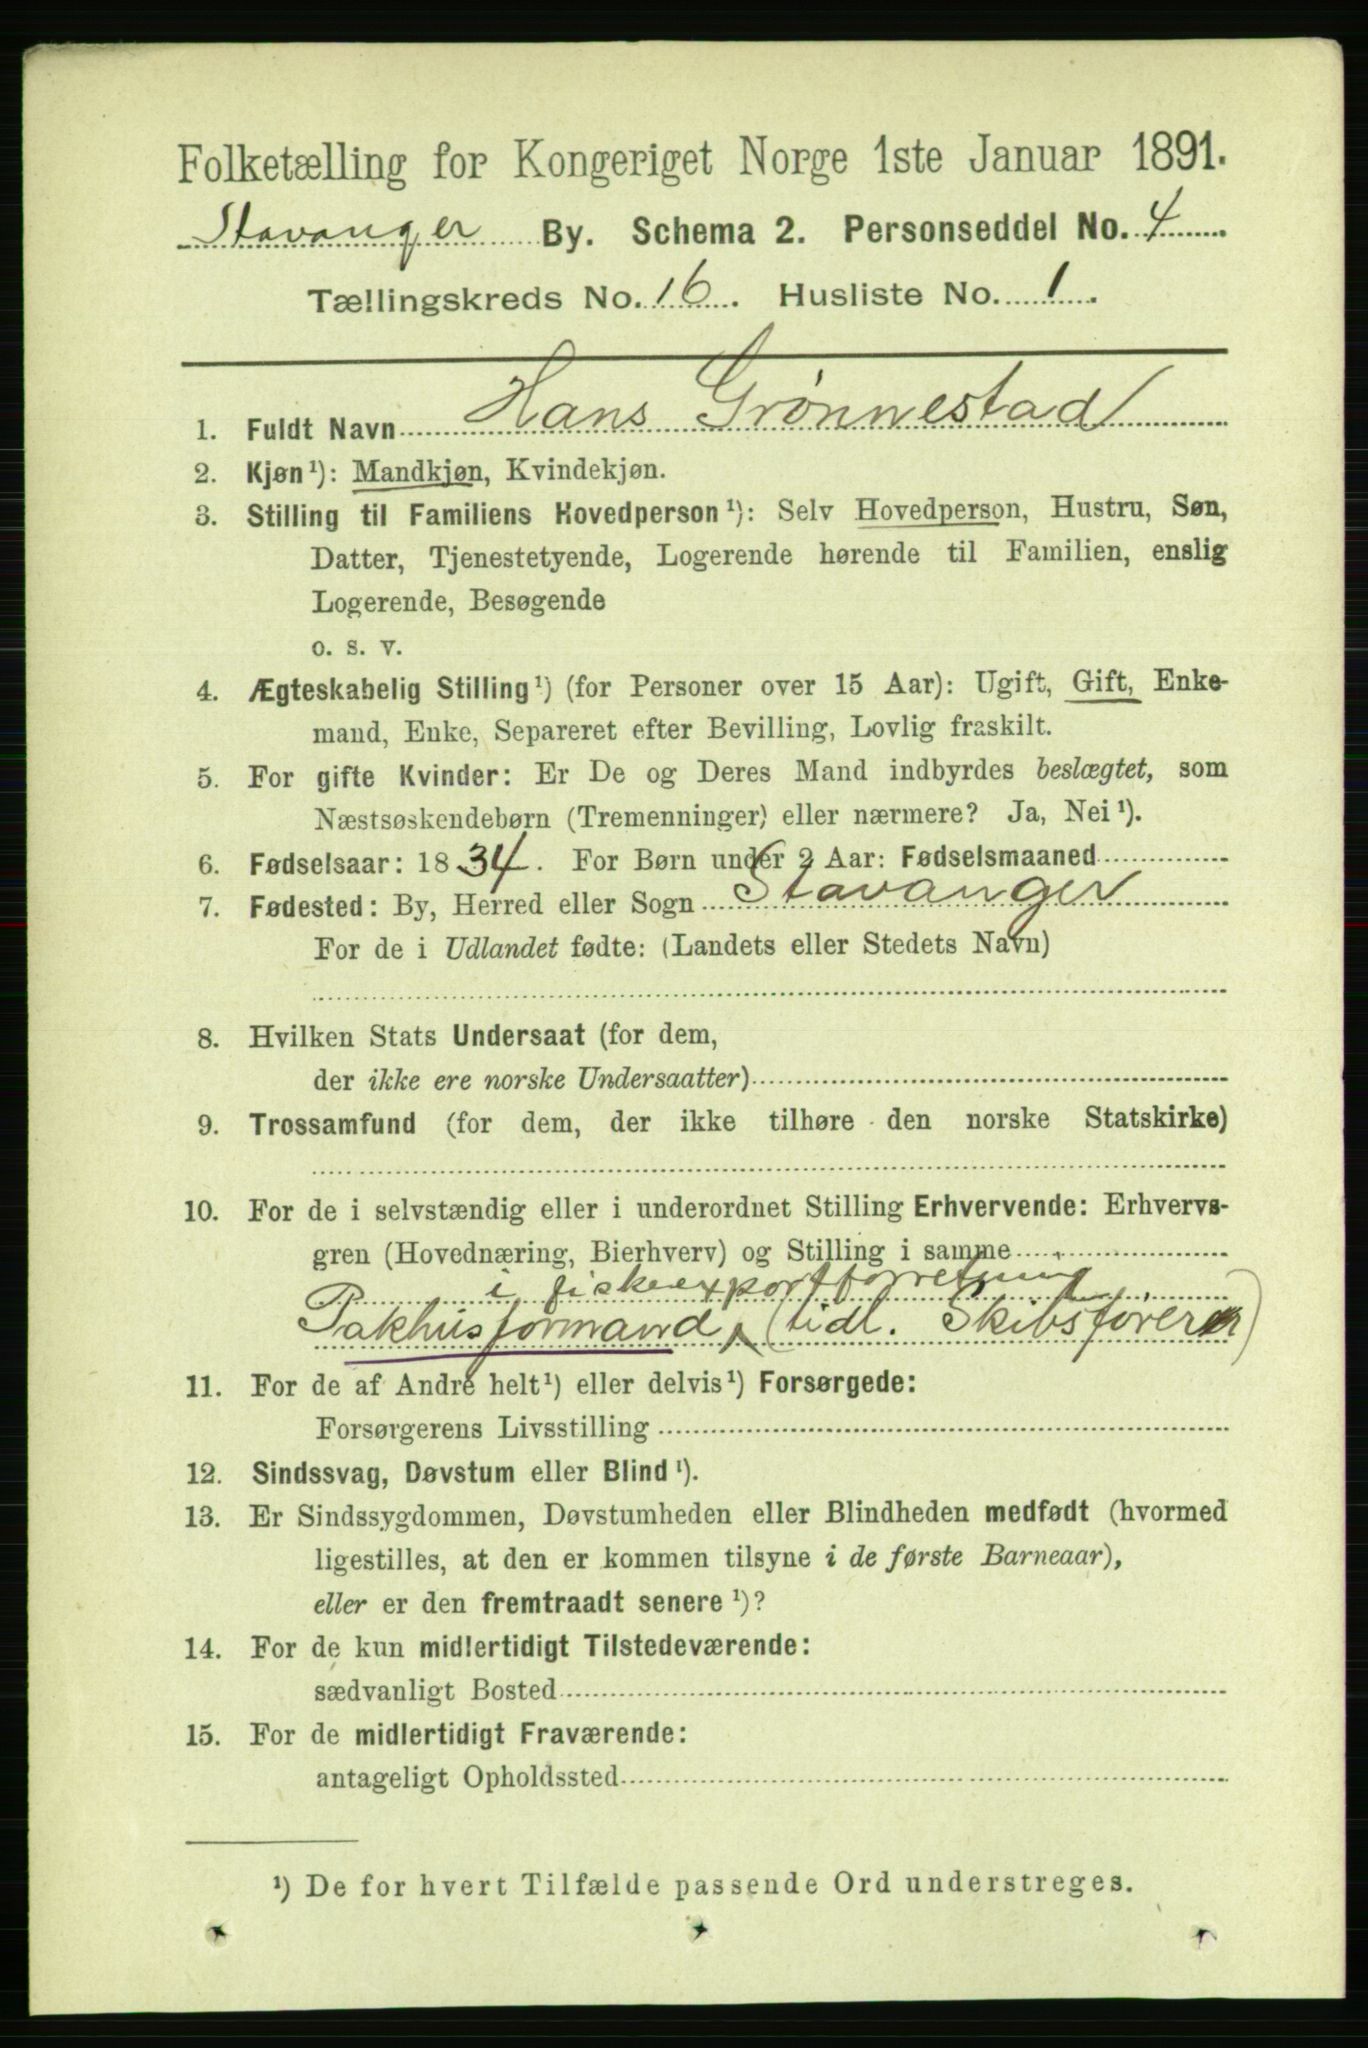 Folketælling for Kongeriget Norge 1ste Januar 1891.
Stavanger By. Schema 2. Personseddel No. 4
Tællingskreds No. 16. Husliste No. 1.
1. Fuldt Navn Hans Grønnestad
2. Kjøn¹): Mandkjøn, Kvindekjøn.
3. Stilling til Familiens Hovedperson¹): Selv Hovedperson, Hustru, Søn,
Datter, Tjenestetyende, Logerende hørende til Familien, enslig
Logerende, Besøgende
o. s. v.
4. Ægteskabelig Stilling¹) (for Personer over 15 Aar): Ugift, Gift, Enke-
mand, Enke, Separeret efter Bevilling, Lovlig fraskilt.
5. For gifte Kvinder: Er De og Deres Mand indbyrdes beslægtet, som
Næstsøskendebørn (Tremenninger) eller nærmere? Ja, Nei¹).
6. Fødselsaar: 1834. For Børn under 2 Aar: Fødselsmaaned
7. Fødested: By, Herred eller Sogn Stavanger
For de i Udlandet fødte: (Landets eller Stedets Navn)
8. Hvilken Stats Undersaat (for dem,
der ikke ere norske Undersaatter)
9. Trossamfund (for dem, der ikke tilhøre den norske Statskirke)
10. For de i selvstændig eller i underordnet Stilling Erhvervende: Erhvervs-
gren (Hovednæring, Bierhverv) og Stilling i samme
i fiskeexportforretning
Pakhusformand (tidl. Skibsfører)
11. For de af Andre helt¹) eller delvis¹) Forsørgede:
Forsørgerens Livsstilling
12. Sindssvag, Døvstum eller Blind¹).
13. Er Sindssygdommen, Døvstumheden eller Blindheden medfødt (hvormed
ligestilles, at den er kommen tilsyne i de første Barneaar),
eller er den fremtraadt senere¹)?
14. For de kun midlertidigt Tilstedeværende:
sædvanligt Bosted
15. For de midlertidigt Fraværende:
antageligt Opholdssted
¹) De for hvert Tilfælde passende Ord understreges.